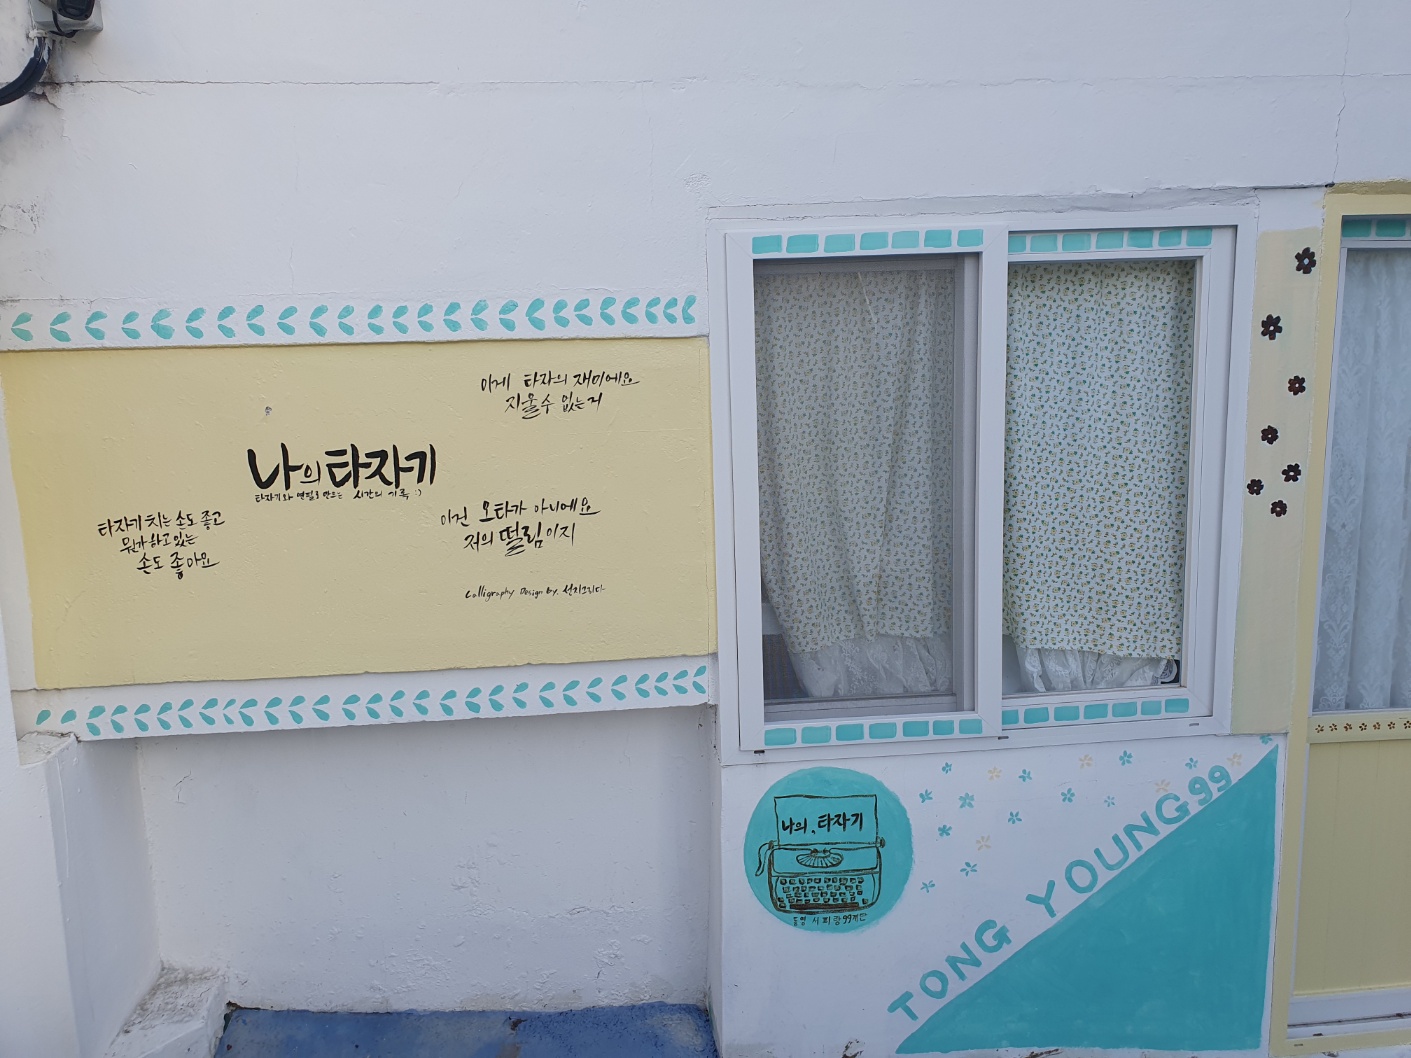 이게 타자의 재미에요
지울수 없는거
나의 타자기
타자기와 연필로 만드는 시간의 기록 :)
타자기 치는 손도 좋고
뭔가 하고 있는
손도 좋아요
이건 오타가 아니에요
저의 떨림이지
Calligraphy Design by. 석지그리다
나의, 타자기
통영 서피랑99계단
TONG YOUNG99